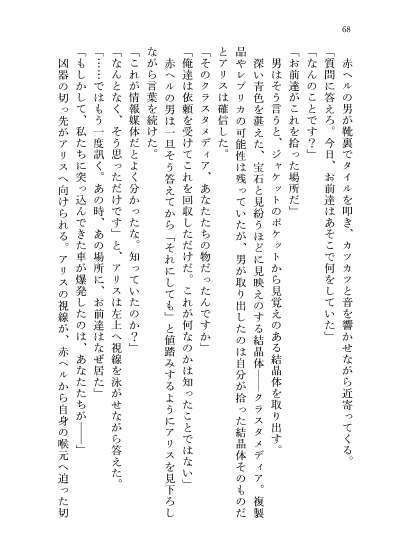 68
赤ヘルの男が靴裏でタイルを叩き、カツカツと音を響かせながら近寄ってくる。
「質問に答えろ。今日、お前達はあそこで何をしていた」
「なんのことです？」
「お前達がこれを拾った場所だ」
男はそう言うと、ジャケットのポケットから見覚えのある結晶体を取り出す。
深い青色を湛えた、宝石と見紛うほどに見映えのする結晶体――クラスタメディア。複製
品やレプリカの可能性は残っていたが、男が取り出したのは自分が拾った結晶体そのものだ
とアリスは確信した。
「そのクラスタメディア、あなたたちの物だったんですか」
「俺達は依頼を受けてこれを回収しただけだ。これが何なのかは知ったことではない」
赤ヘルの男は一旦そう答えてから「それにしても」と値踏みするようにアリスを見下ろし
ながら言葉を続けた。
「これが情報媒体だとよく分かったな。知っていたのか？」
「なんとなく、そう思っただけです」と、アリスは左上へ視線を泳がせながら答えた。
「……ではもう一度訊く。あの時、あの場所に、お前達はなぜ居た」
「もしかして、私たちに突っ込んできた車が爆発したのは、あなたたちが――」
凶器の切っ先がアリスへ向けられる。アリスの視線が、赤ヘルから自身の喉元へ迫った切